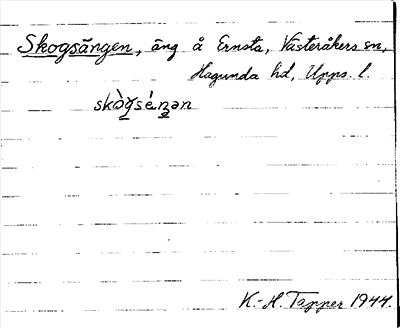 Skogsängen, äng å Ernsta, Västeråkers sn,
Hagunda hd, Upps. l.
skògséŋən
K.-H. Tapper 1944.